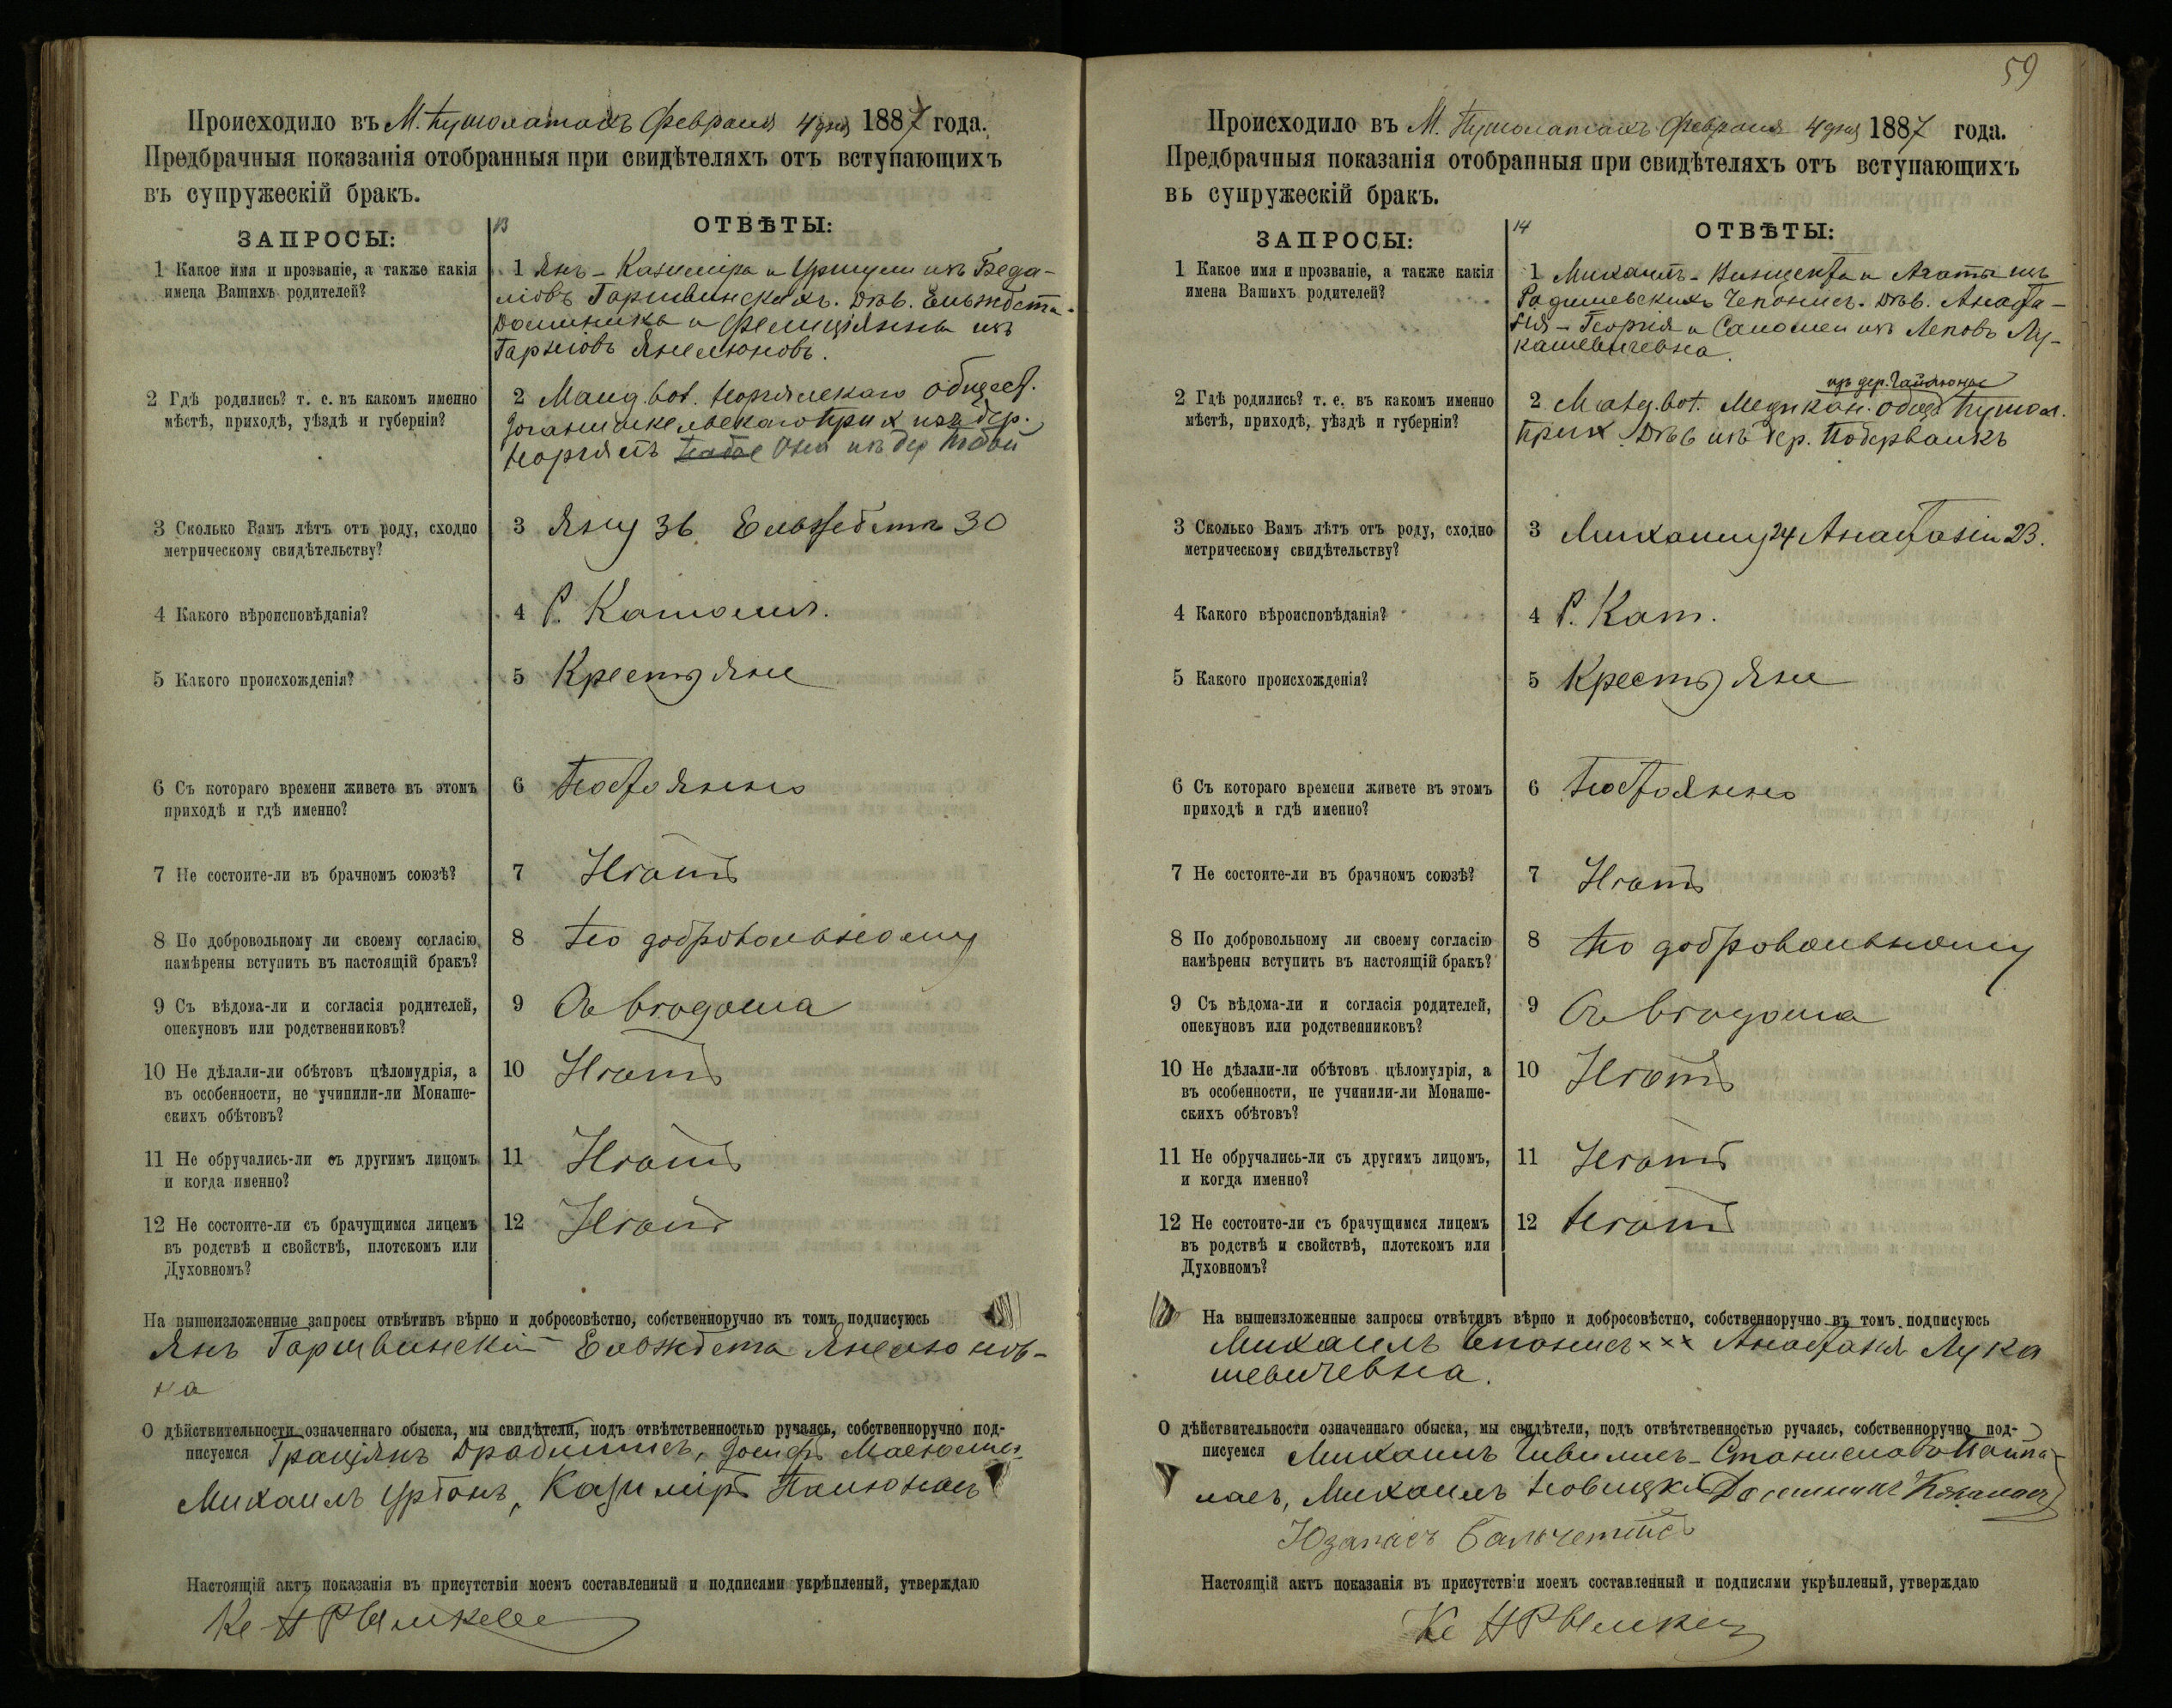 Происходило въ М. Пушолатахъ Февраля 4 дня 1887 года.
Предбрачныя показанія отобранныя при свидѣтеляхъ отъ вступающихъ
въ супружескій бракъ.
ЗАПРОСЫ:
13
ОТВѢТЫ:
1 Какое имя и прозваніе, а также какія
имена Вашихъ родителей?
1 Янъ - Казиміра и Уршули изъ
Гаршвинскихъ. Дѣв. Ельжбета -
Доминика и Фелиціянны изъ
Янелюновъ.
2 Гдѣ родились? т. е. въ какомъ именно
мѣстѣ, приходѣ, уѣздѣ и губерніи?
2 общест.
прих изъ дер.
Она изъ дер
3 Сколько Вамъ лѣтъ отъ роду, сходно
метрическому свидѣтельству?
3 Яну 36 Ельжбетѣ 30
4 Какого вѣроисповѣданія?
4 Р. Католич.
5 Какого происхожденія?
5 Крестьяне
6 Съ котораго времени живете въ этомъ
приходѣ и гдѣ именно?
6 Постоянно
7 Не состоите-ли въ брачномъ союзѣ?
7 Нѣтъ
8 По добровольному ли своему согласію
намѣрены вступить въ настоящій бракъ?
8 По добровольному
9 Съ вѣдома-ли и согласія родителей,
опекуновъ или родственниковъ?
9 Съ вѣдома
10 Не дѣлали-ли обѣтовъ цѣломудрія, а
въ особенности, не учинили-ли Монаше-
скихъ обѣтовъ?
10 Нѣтъ
11 Не обручались-ли съ другимъ лицомъ
и когда именно?
11 Нѣтъ
12 Не состоите-ли съ брачущимся лицемъ
въ родствѣ и свойствѣ, плотскомъ или
Духовномъ?
12 Нѣтъ
На вышеизложенные запросы отвѣтивъ вѣрно и добросовѣстно, собственноручно въ томъ подписуюсь
Янъ Гаршвинскій Ельжбета Янелюнов-
на
О дѣйствительности означеннаго обыска, мы свидѣтели, подъ отвѣтственностью ручаясь, собственноручно под-
писуемся Граціянъ
Михаилъ Урбонъ, Казиміръ
Настоящій актъ показанія въ присутствіи моемъ составленный и подписями укрѣпленый, утверждаю
59
Происходило въ М. Пушолатахъ Февраля 4 дня 1887 года.
Предбрачныя показанія отобранныя при свидѣтеляхъ отъ вступающихъ
въ супружескій бракъ.
ЗАПРОСЫ:
14
ОТВѢТЫ:
1 Какое имя и прозваніе, а также какія
имена Вашихъ родителей?
1 Михаилъ - Винцента и Агаты изъ
Радишевскихъ Чепонисъ. Дѣв. Анаста-
сія - Георгія и Саломеи изъ Леповъ Лу-
кашевичевна.
2 Гдѣ родились? т. е. въ какомъ именно
мѣстѣ, приходѣ, уѣздѣ и губерніи?
изъ дер.
2 общ. Пушол.
прих. Дѣв изъ дер.
3 Сколько Вамъ лѣтъ отъ роду, сходно
метрическому свидѣтельству?
3 Михаилу 24 Анастасіи 23.
4 Какого вѣроисповѣданія?
4 Р. Кат.
5 Какого происхожденія?
5 Крестьяне
6 Съ котораго времени живете въ этомъ
приходѣ и гдѣ именно?
6 Постоянно
7 Не состоите-ли въ брачномъ союзѣ?
7 Нѣтъ
8 По добровольному ли своему согласію
намѣрены вступить въ настоящій бракъ?
8 По добровольному
9 Съ вѣдома-ли и согласія родителей,
опекуновъ или родственниковъ?
9 Съ вѣдома
10 Не дѣлали-ли обѣтовъ цѣломудрія, а
въ особенности, не учинили-ли Монаше-
скихъ обѣтовъ?
10 Нѣтъ
11 Не обручались-ли съ другимъ лицомъ,
и когда именно?
11 Нѣтъ
12 Не состоите-ли съ брачущимся лицемъ
въ родствѣ и свойствѣ, плотскомъ или
Духовномъ?
12 Нѣтъ
На вышеизложенные запросы отвѣтивъ вѣрно и добросовѣстно, собственноручно въ томъ подписуюсь
Михаилъ Чепонисъ××× Анастасія Лука
шевичевна.
О дѣйствительности означеннаго обыска, мы свидѣтели, подъ отвѣтственностью ручаясь, собственноручно под-
писуемся Михаилъ
Михаилъ Новицкій
Юзапасъ
Настоящій актъ показанія въ присутствіи моемъ составленный и подписями укрѣпленый, утверждаю